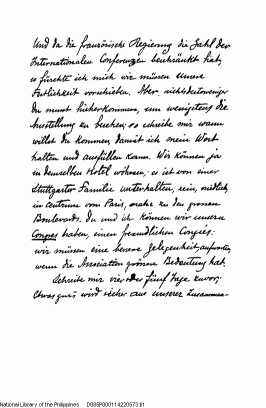 Und da die französische Regierung die Zahl der
Internationalen Conferenzen beschränkt hat,
so fürchte ich mich wir müssen unsere
Festlichkeit verschieben. Aber nichtsdestoweniger
du musst hieherkommen, um wenigstens die
Ausstellung zu besuchen; so schreibe mir wann
willst du kommen damit ich mein Wort
halten und ausfüllen kann. Wir können ja
in demselben Hotel wohnen; es ist von einer
Stuttgarter Familie unterhalten, rein, niedlich,
im Centrum von Paris, nahe zu den grossen
Boulevards. Du und ich können wir unsere
Congres haben, einen freundlichen Congrés:
wir müssen eine bessere Gelegenheit
wenn die Association grössere Bedeutung hat.
Schreibe mir vier oder fünf Tage zuvor;
Etwas gutes wird sicher aus unserer Zusammen-
National Library of the Philippines